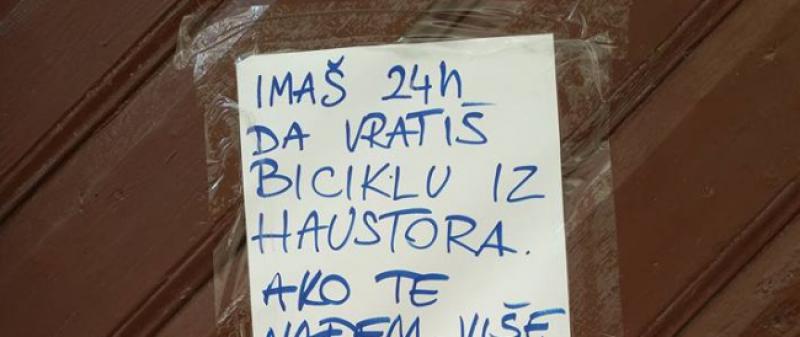 IMAŠ 24h
DA VRATIŠ
BICIKLU IZ
HAUSTORA.
AKO TE
NAĐEM VIŠE